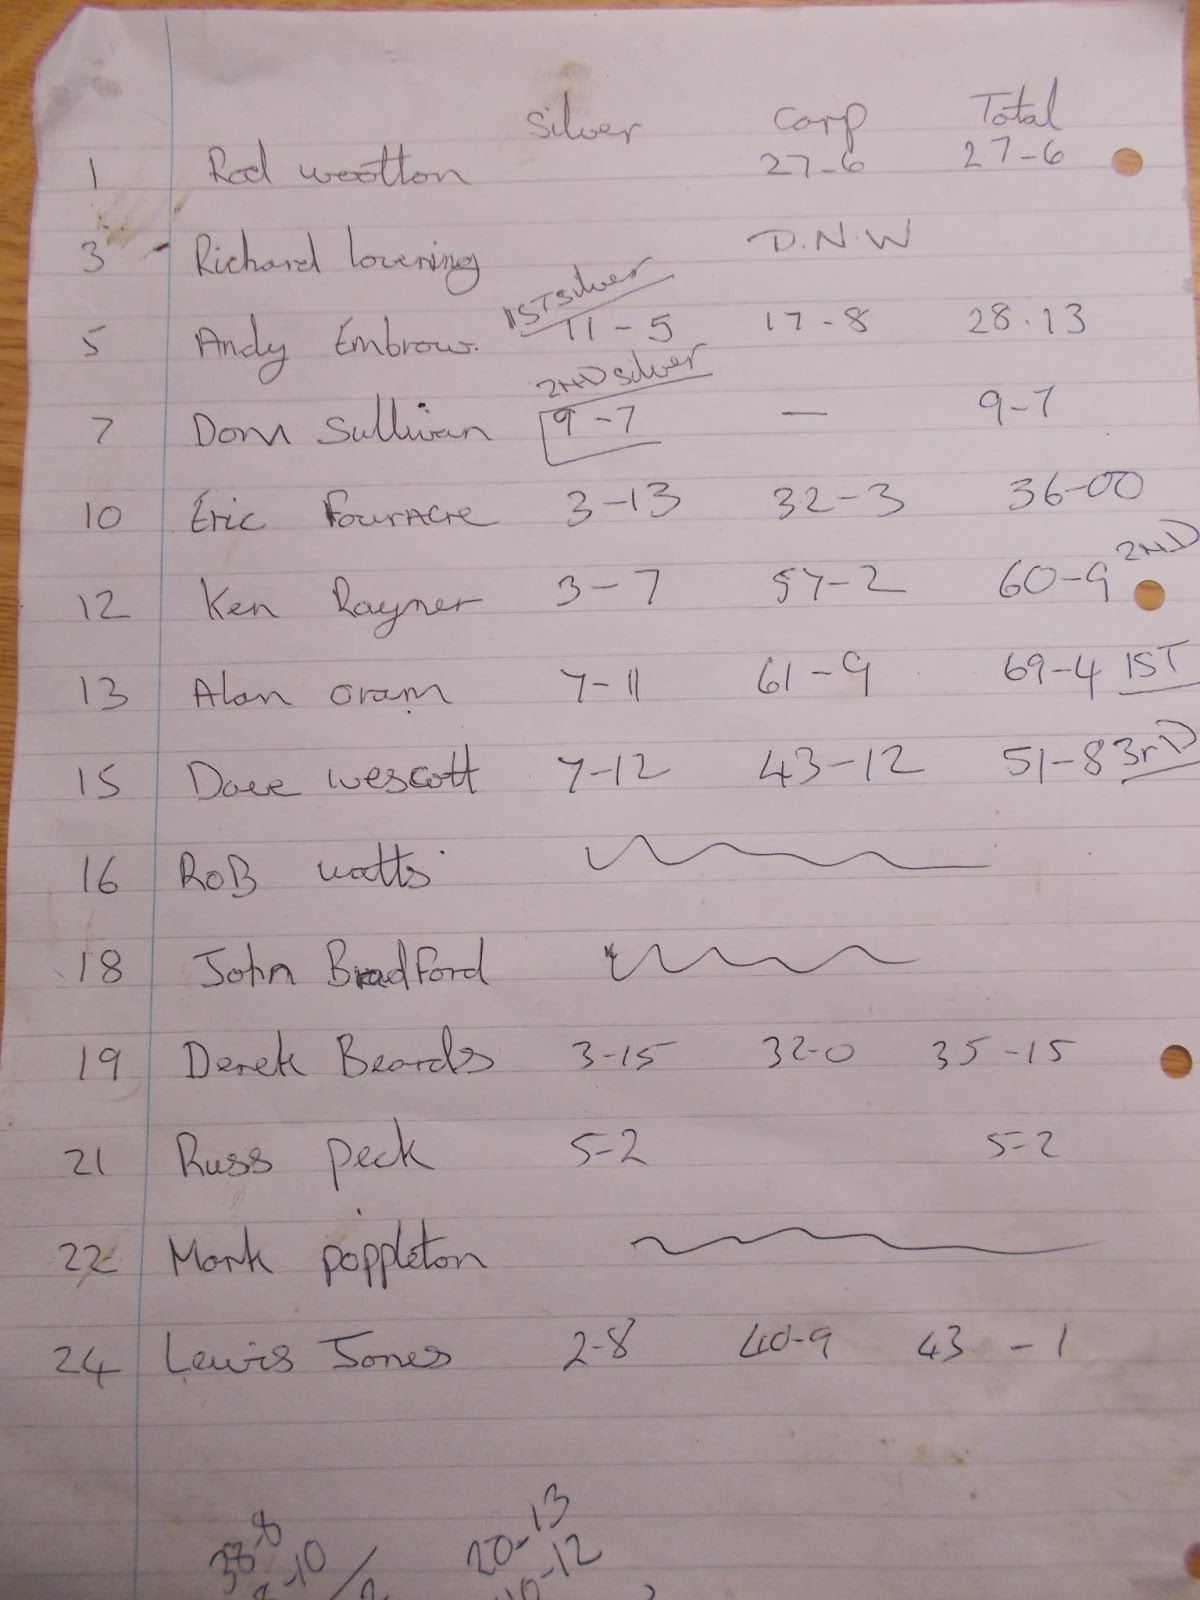 Silver Carp Total
1 Rod wootton 27-6 27-6
3 Richard lovering D.N.W
1ST silver
5 Andy Embrow. 11-5 17-8 28.13
2ND silver
7 Dom Sullivan 9-7 — 9-7
10 Eric Fouracre 3-13 32-3 36-00
12 Ken Rayner 3-7 57-2 60-9 2ND
13 Alan oram 7-11 61-9 69-4 1ST
15 Dave wescott 7-12 43-12 51-8 3rD
16 RoB watts
18 John Bradford
19 Derek Beards 3-15 32-0 35-15
21 Russ peck 5-2 5-2
22 Mark poppleton
24 Lewis Jones 2-8 40-9 43-1
38-8 20-13